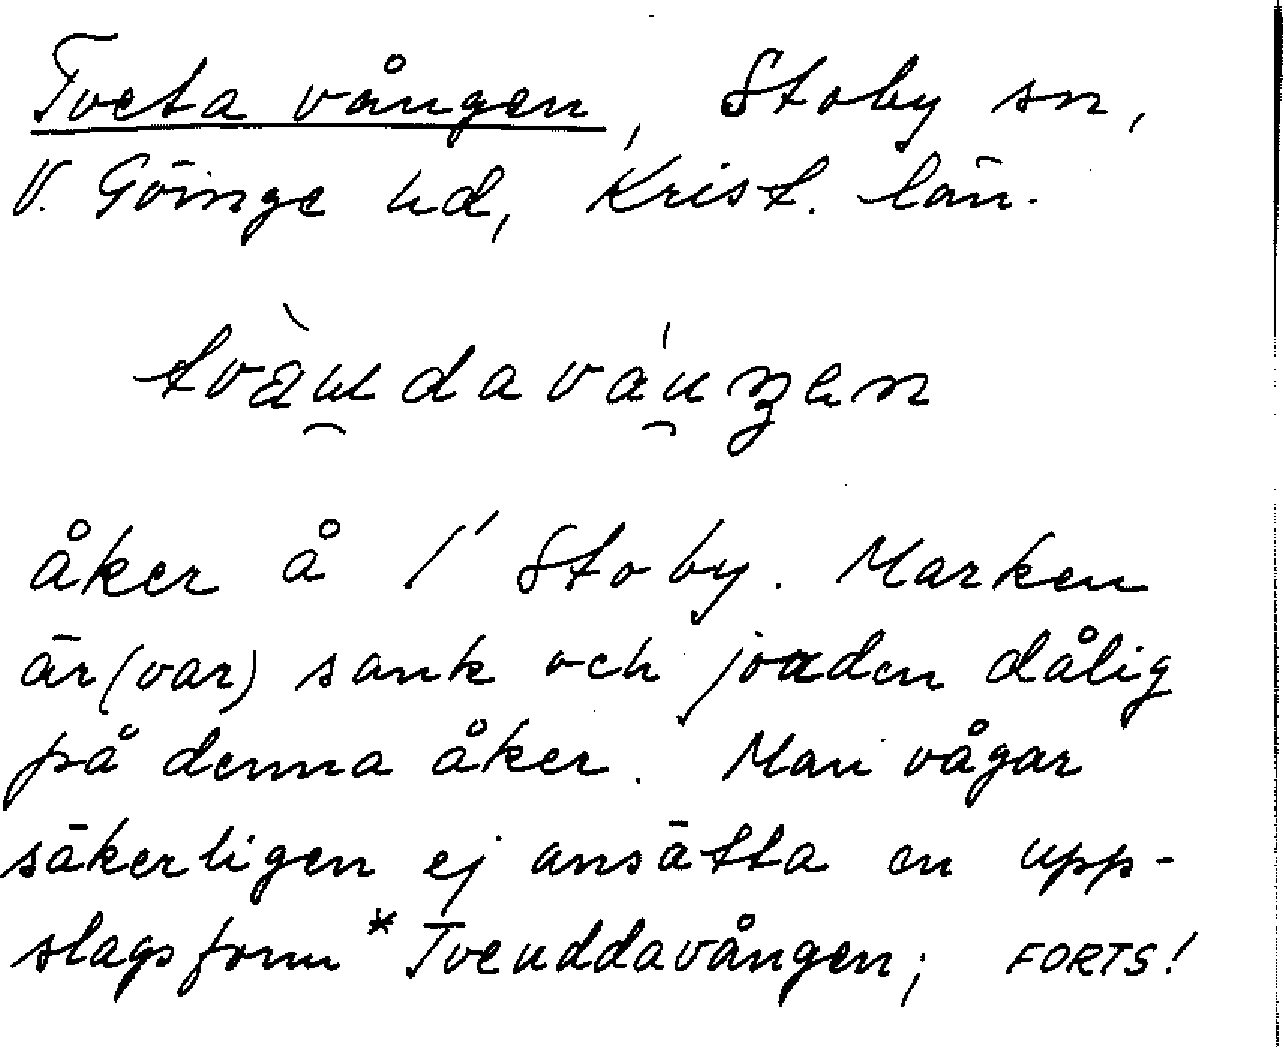 Tveta vången, Stoby sn,
V. Göinge hd, Krist. län.
åker å 1' Stoby. Marken
är (var) sank och jorden dålig
på denna åker. Man vågar
säkerligen ej ansätta en upp-
slagsform *Tveuddavången; FORTS!